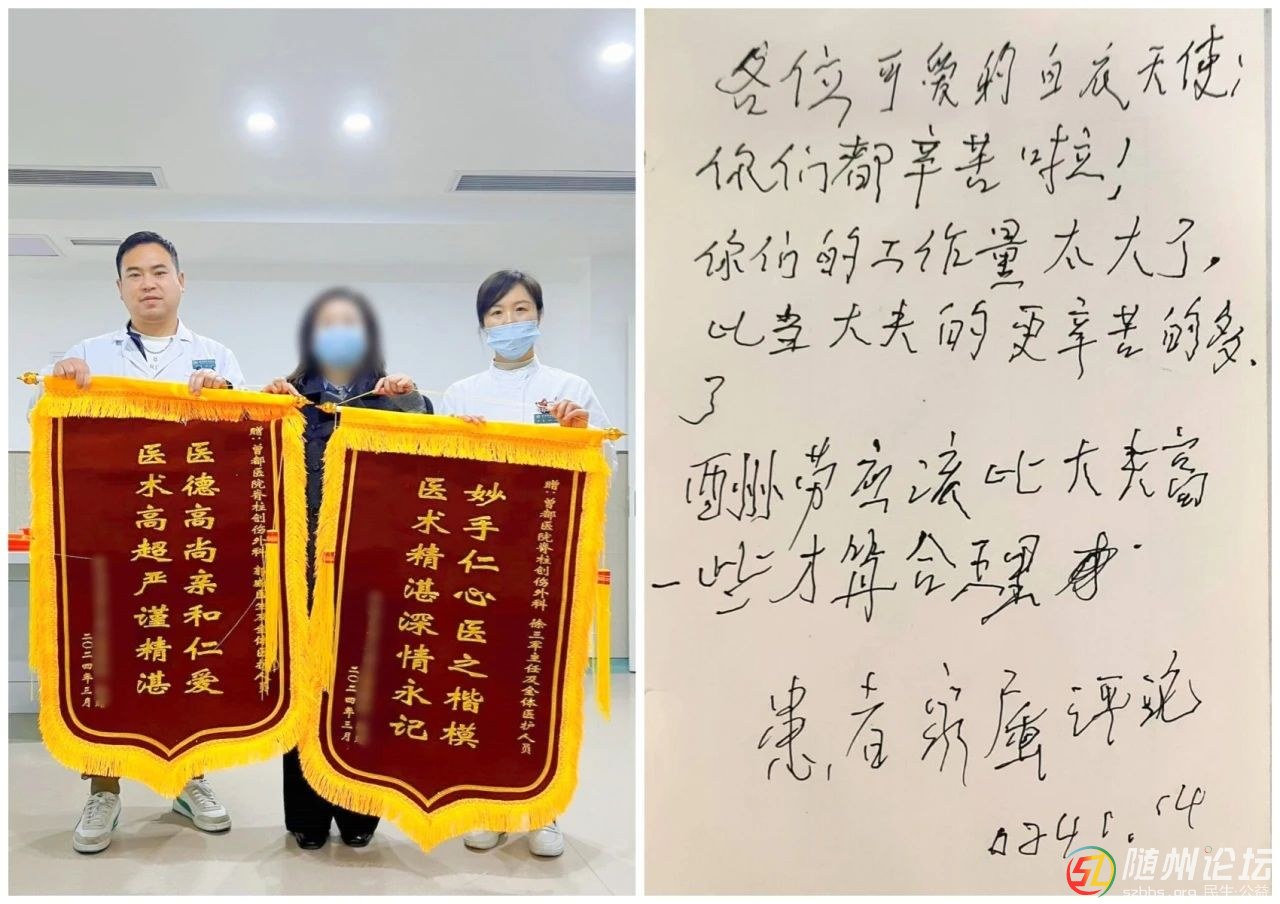 赠：曾都医院脊柱创伤外科
全体医护人员
医德高尚亲和仁爱
医术高超严谨精湛
二〇二四年三月
赠：曾都医院脊柱创伤外科 徐三军主任及全体医护人员
妙手仁心医之楷模
医术精湛深情永记
二〇二四年三月
各位可爱的白衣天使：
你们都辛苦啦！
你们的工作量太大了，
比当大夫的更辛苦的多
了
酬劳应该比大夫高
一些才算合理
患者家属评论
随州论坛
szbbs.org 民生·公益